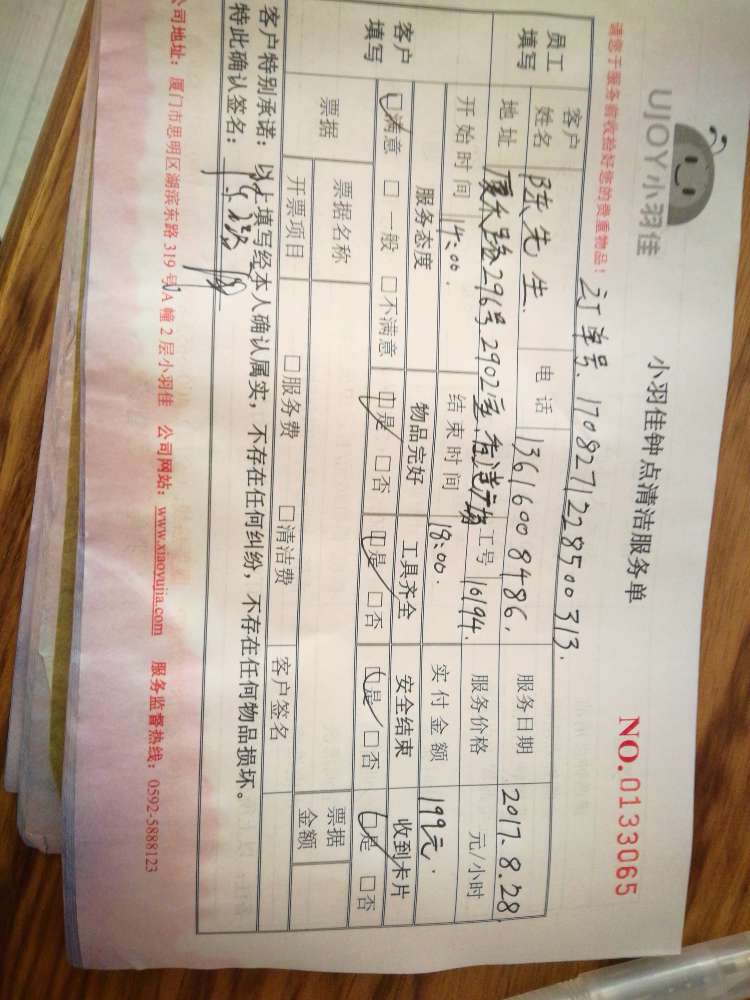 UJOY小羽佳
小羽佳钟点清洁服务单
NO.0133065
请您于服务前收拾好您的贵重物品！
订单号.1708271228500313.
员工填写
客户姓名 陈先生. 电话 13616008486. 服务日期 2017.8.28
地址 296号2902室 工号 10194. 服务价格 元/小时
开始时间 14:00. 结束时间 18:00. 实付金额 199元.
客户填写
服务态度 物品完好 工具齐全 安全结束 收到卡片
☑满意 □一般 □不满意 ☑是 □否 ☑是 □否 ☑是 □否 ☑是 □否
票据 票据名称 票据金额
开票项目 □服务费 □清洁费 客户签名
客户特别承诺：以上填写经本人确认属实，不存在任何纠纷，不存在任何物品损坏。
特此确认签名：
公司地址：厦门市思明区湖滨东路319号A幢2层小羽佳 公司网站：www.xiaoyujia.com 服务监督热线：0592-5888123